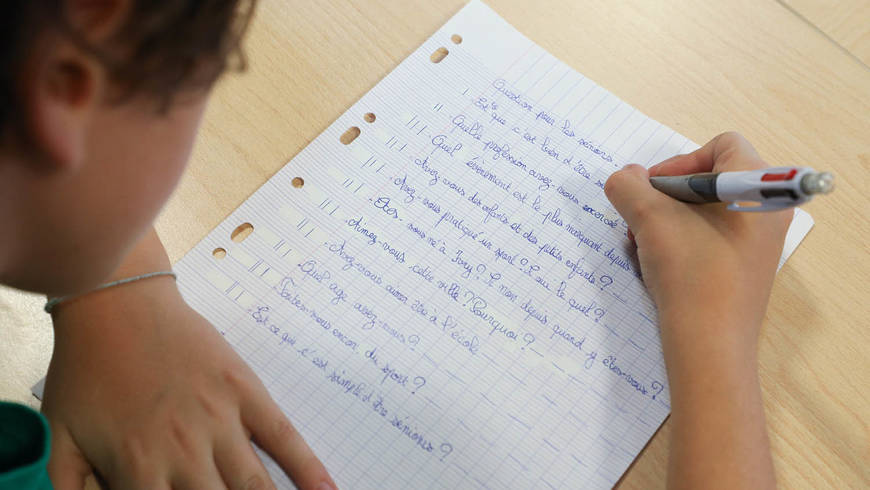 Question pour les séniors.
Est ce que c'est bien d'être se
Quelle profession avez-vous exercée
Quel évènement est le plus marquant depuis
Avez-vous des enfants et des petits enfants?
Avez-vous pratiqué un sport? Si oui le quel?
Êtes-vous né à Ivry? Si non depuis quand y êtes-vous?
Aimez-vous cette ville? Pourquoi?
Avez-vous aimé être à l'école
Quel age avez-vous?
Faites-vous encor du sport?
Est ce que c'est simple d'être séniors?